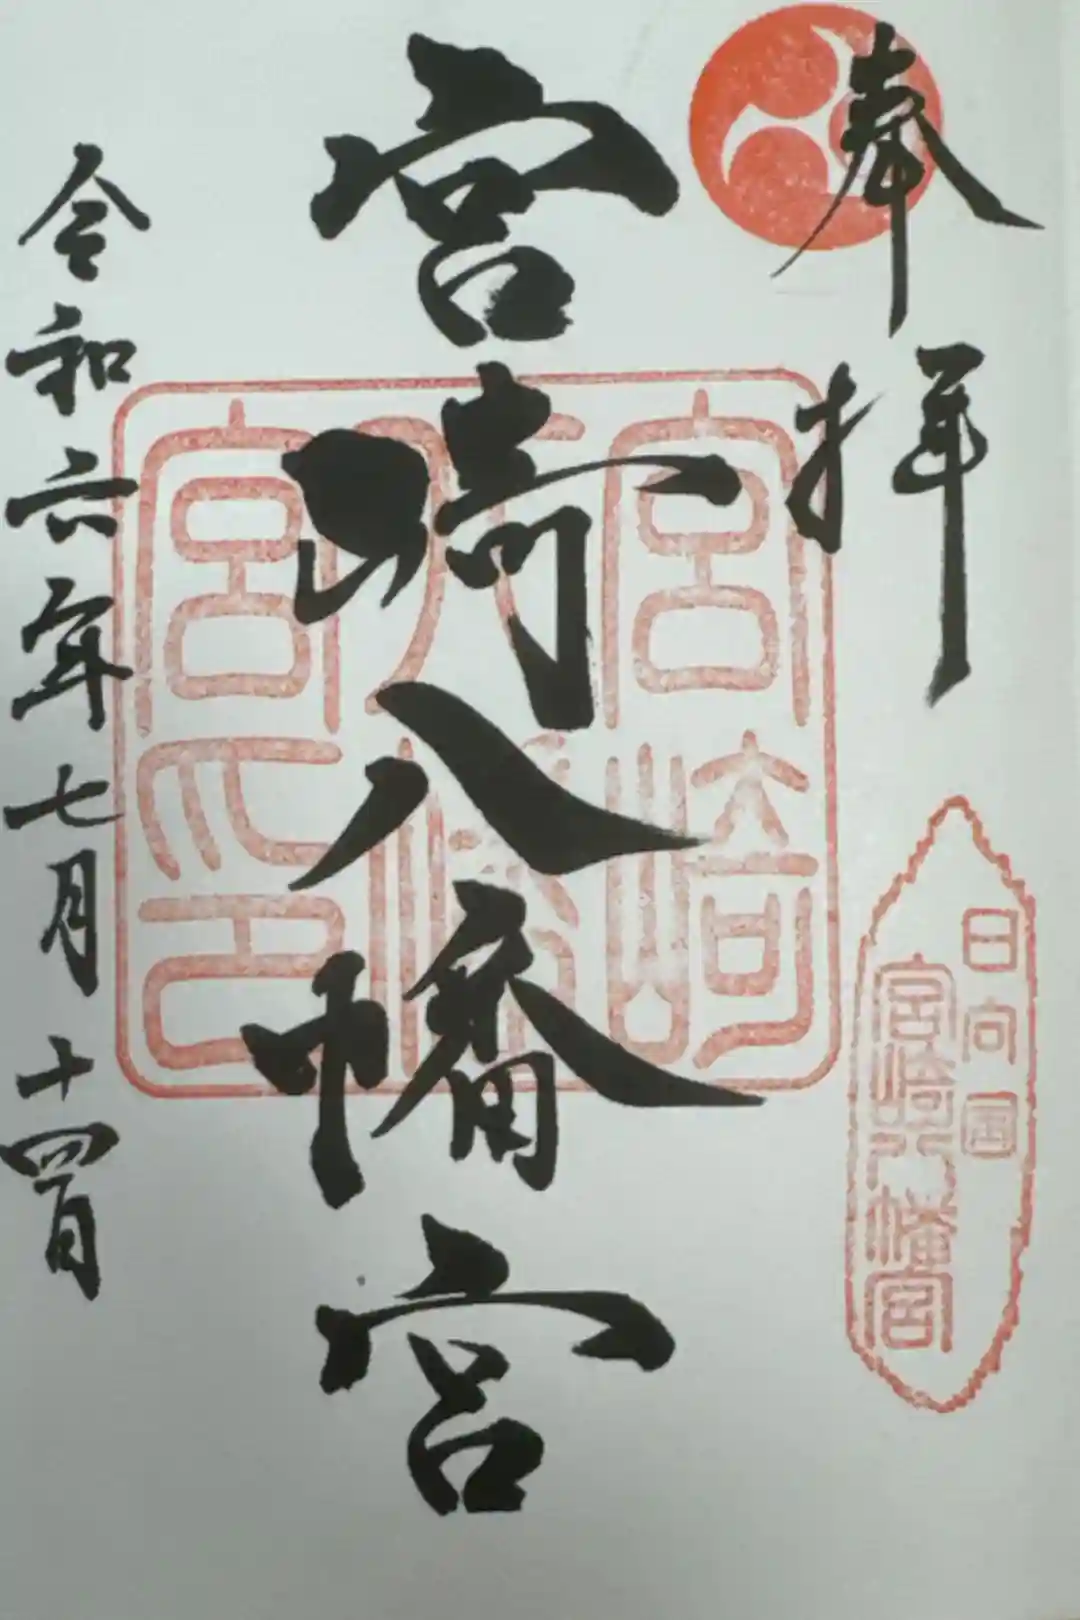 奉拝
日向国
宮崎八幡宮
宮崎
八幡
宮印
宮崎八幡宮
令和六年七月十四日